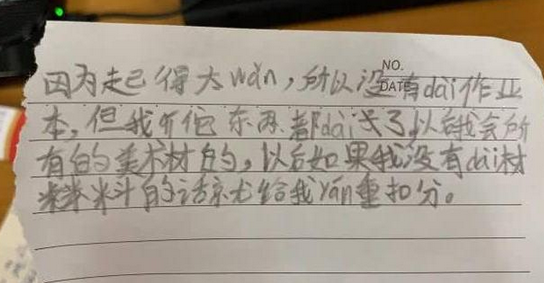 NO.
DATE
因为起得大wǎn，所以没有dài作业
本，但我其他东西都dài齐了，以后我会所
有的美术材的，以后如果我没有dài材
料的话就给我yán重扣分。